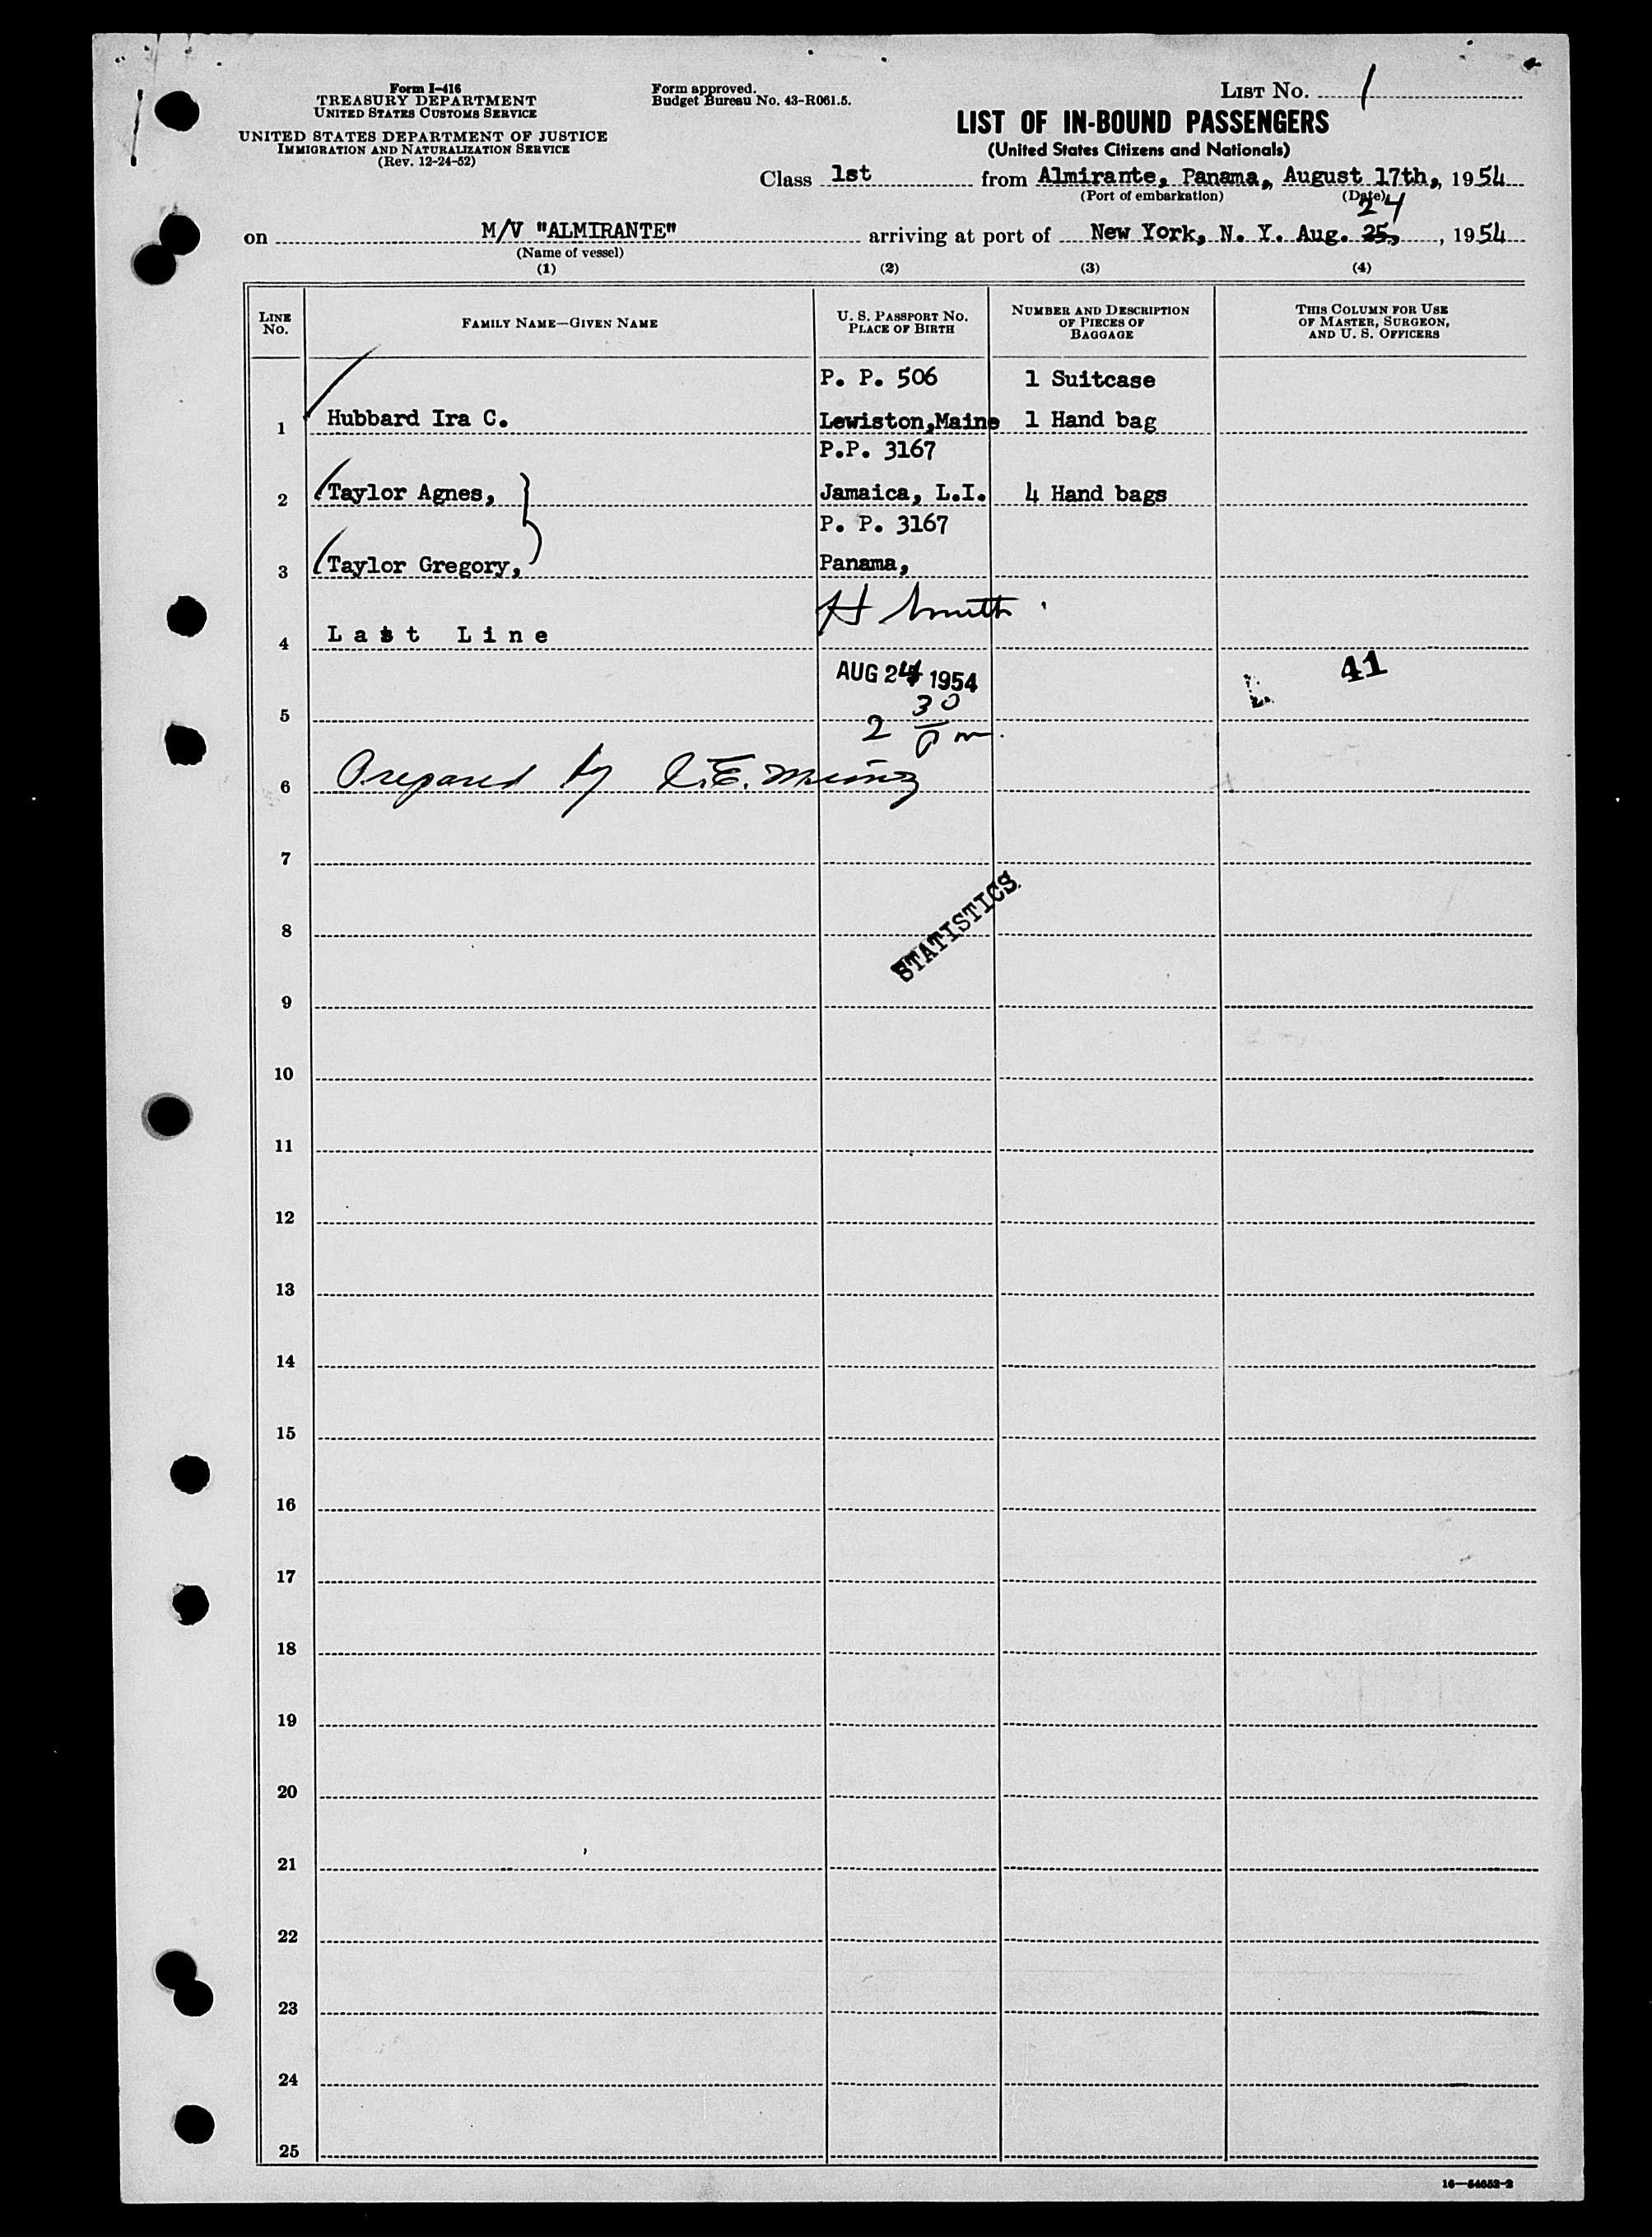 Form I-416
TREASURY DEPARTMENT
UNITED STATES CUSTOMS SERVICE
UNITED STATES DEPARTMENT OF JUSTICE
IMMIGRATION AND NATURALIZATION SERVICE
(Rev. 12-24-52)
Form approved.
Budget Bureau No. 43-R061.5.
LIST No. 1
LIST OF IN-BOUND PASSENGERS
(United States Citizens and Nationals)
Class 1st from Almirante, Panama, August 17th, 1954
(Port of embarkation) (Date)
24
on M/V "ALMIRANTE" arriving at port of New York, N. Y. Aug. 25, 1954
(Name of vessel)
(1) (2) (3) (4)
LINE No.
FAMILY NAME—GIVEN NAME
U. S. PASSPORT No.
PLACE OF BIRTH
NUMBER AND DESCRIPTION
OF PIECES OF
BAGGAGE
THIS COLUMN FOR USE
OF MASTER, SURGEON,
AND U. S. OFFICERS
P. P. 506 1 Suitcase
1 Hubbard Ira C. Lewiston,Maine 1 Hand bag
P.P. 3167
2 Taylor Agnes, Jamaica, L.I. 4 Hand bags
P. P. 3167
3 Taylor Gregory, Panama,
H Smith
4 Last Line
AUG 24 1954 41
5 2 30 pm.
6 Prepared by
7
STATISTICS
8
9
10
11
12
13
14
15
16
17
18
19
20
21
22
23
24
25
16—54652-2